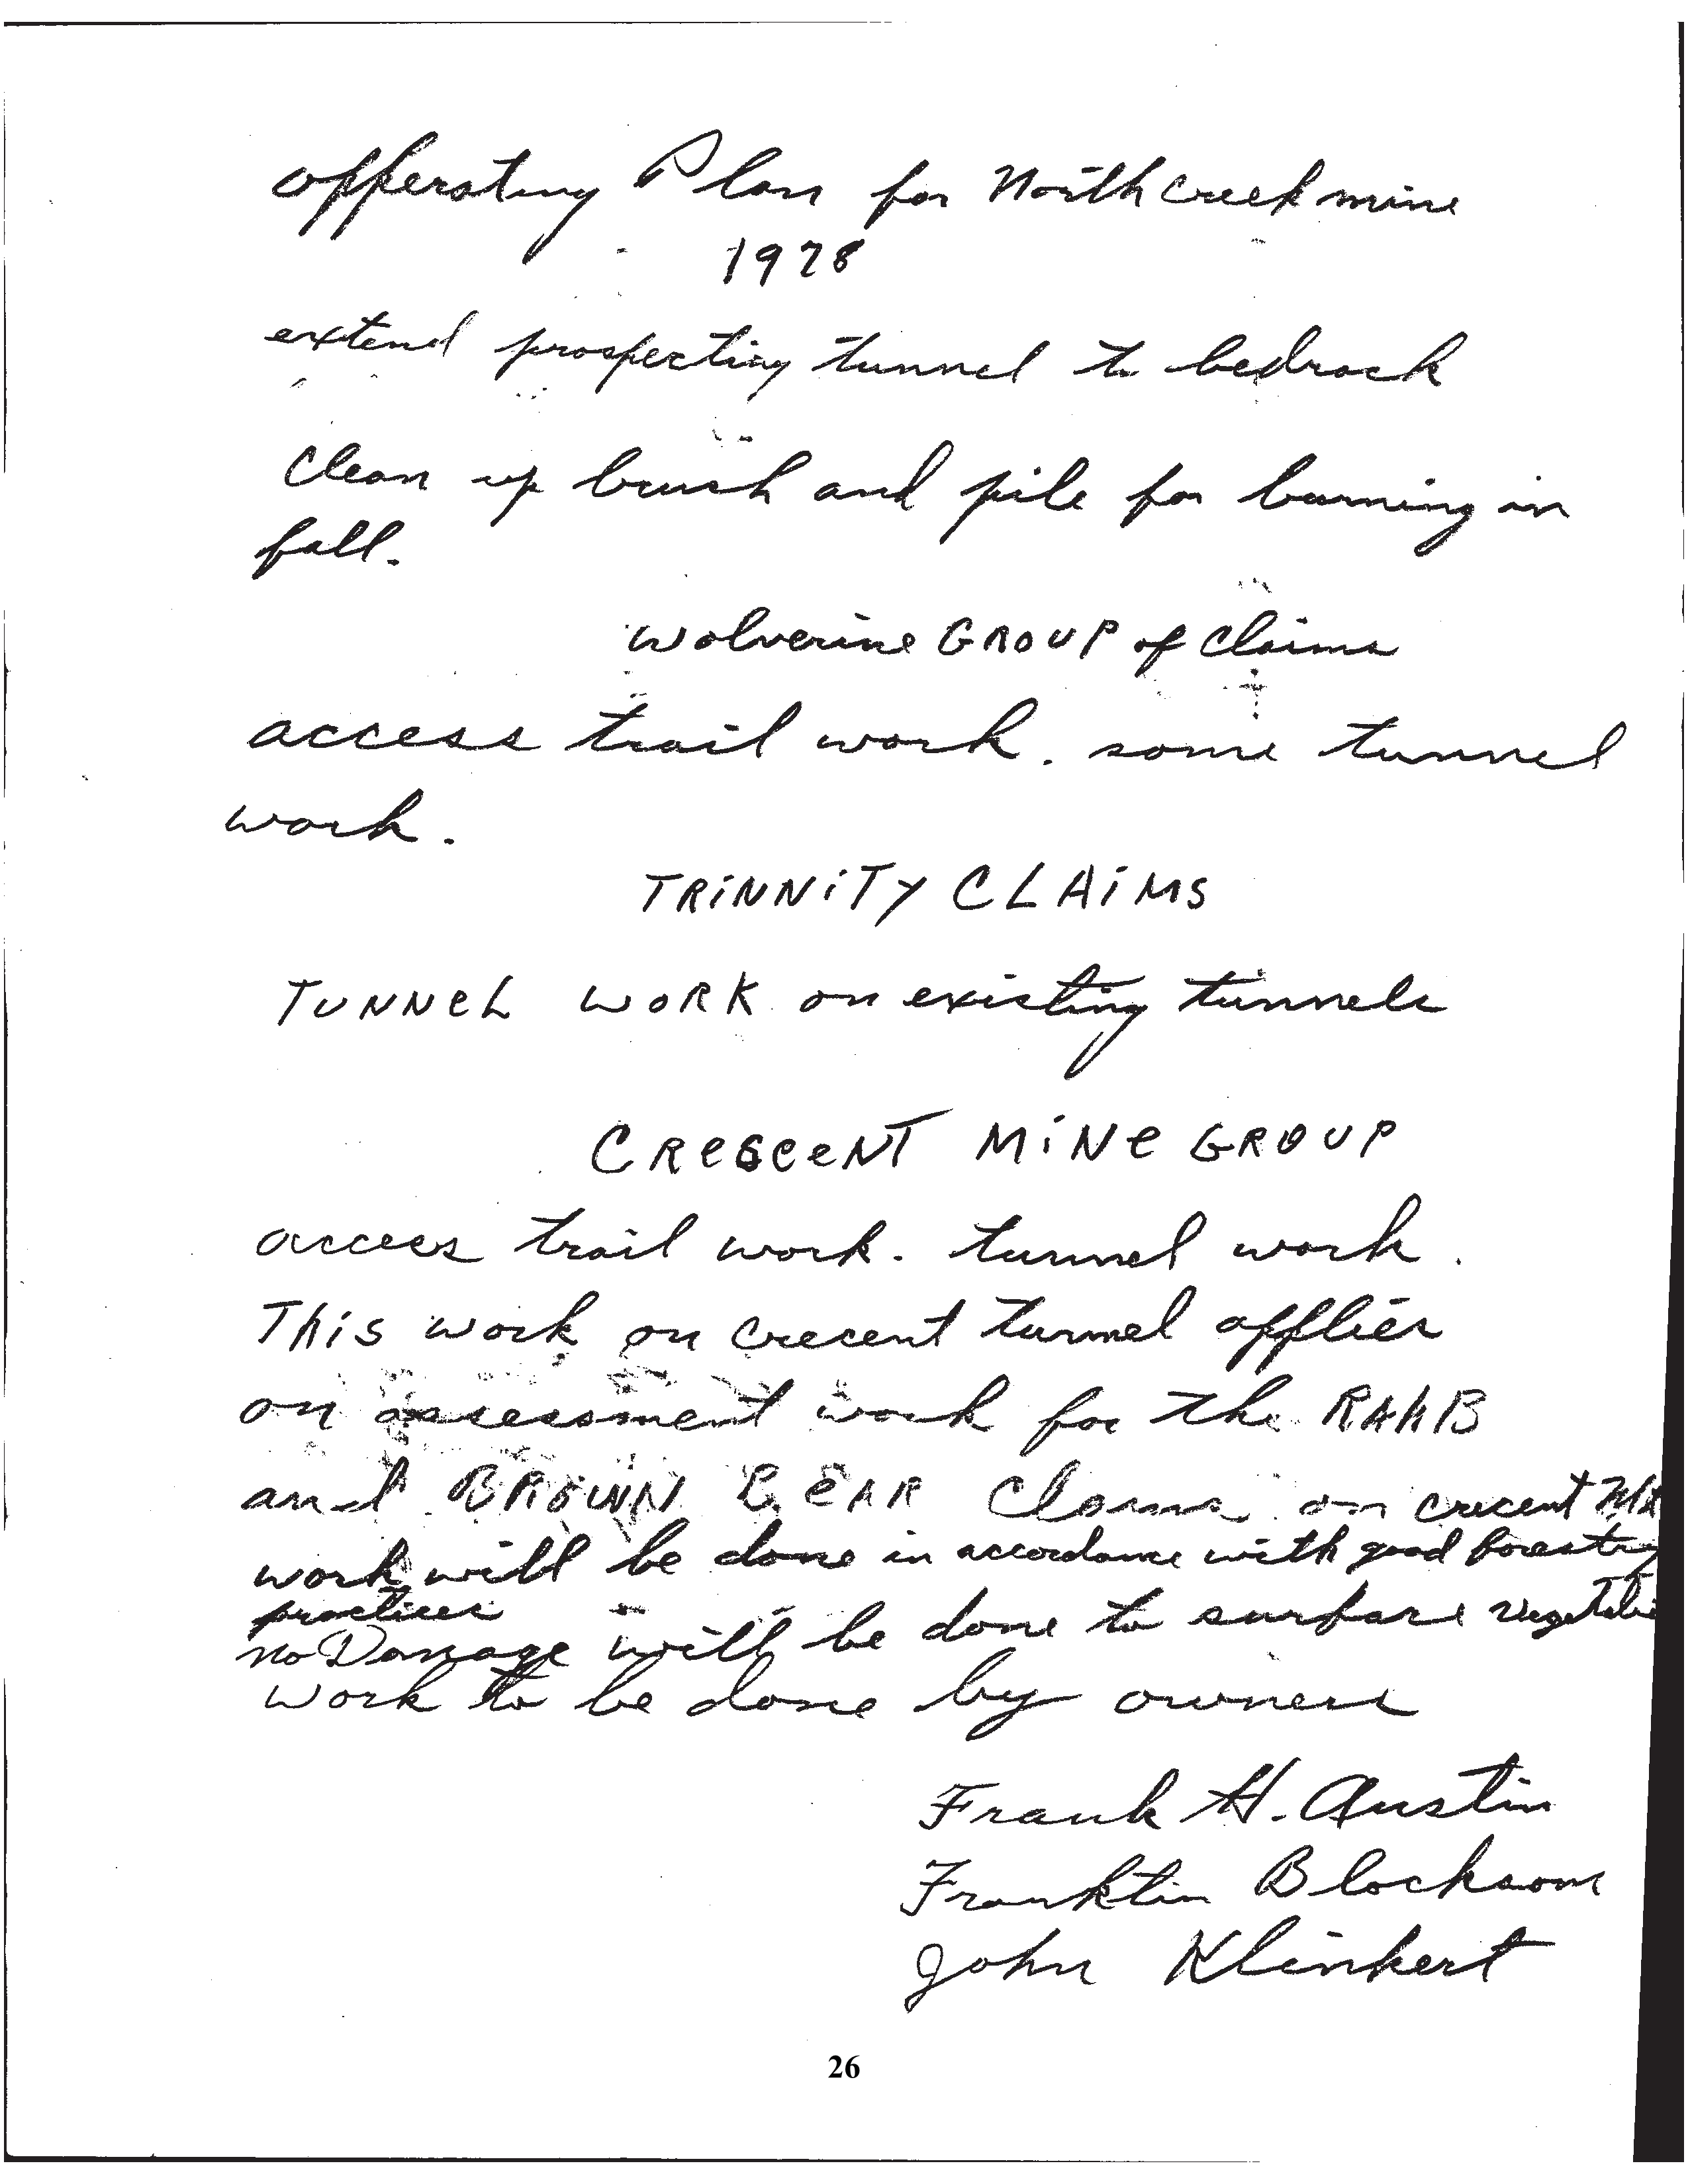 opperating Plan for North Creek mine
1978
extend prospecting tunnel to bedrock
Clean up brush and pile for burning in
fall.
Wolverine GROUP of Claims
access trail work. some tunnel
work.
TRiNNiTY CLAiMS
TUNNeL WORK on existing tunnels
CResCeNT MiNe GROUP
access trail work. tunnel work.
This work on crecent tunnel applies
on assessment work for the RAAB
and BROWN BeAR Claims on crecent Mt
work will be done in accordance with good forestry
practices
no Damage will be done to surface
work to be done by owners
Frank H. Austin
Franklin Blocksom
John Klinkert
26